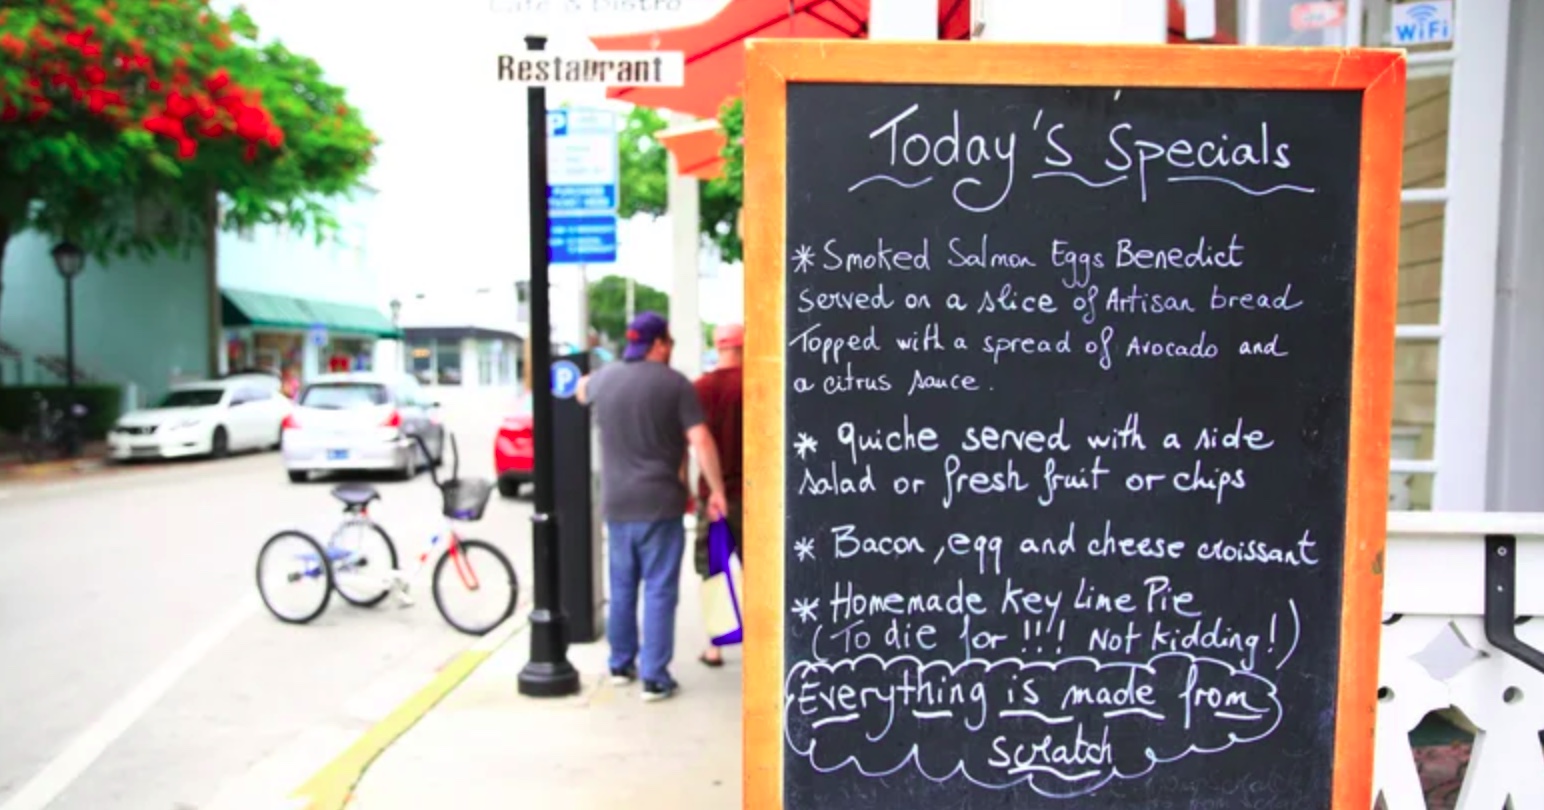 Café & Bistro
Restaurant
P
WiFi
P
Today's Specials
* Smoked Salmon Eggs Benedict
served on a slice of Artisan bread
Topped with a spread of Avocado and
a citrus sauce.
* Quiche served with a side
salad or fresh fruit or chips
* Bacon, egg and cheese croissant
* Homemade Key Lime Pie
(To die for !!! Not kidding!)
Everything is made from
scratch